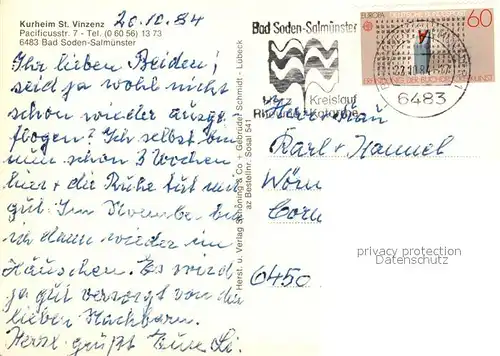 Kurheim St. Vinzenz
Pacificusstr. 7 - Tel. (0 60 56) 13 73
6483 Bad Soden-Salmünster
20.10.84
Ihr lieben Beiden!
seid ja wohl nicht
schon wieder ausge-
flogen? Ich selbst bin
nun schon 3 Wochen
hier + die Ruhe tut mir
gut. Im November bin
ich dann wieder im
Häuschen. Es wird
ja gut versorgt von die
lieben Nachbarn.
Herzl. grüßt Eure Li.
Herst. u. Verlag Schöning & Co + Gebrüder Schmidt - Lübeck
az Bestellnr. Sosal 541
Bad Soden-Salmünster
Herz Kreislauf
Rheuma
EUROPA
60
DEUTSCHE BUNDESPOST
22.10.84
6483
Herr + Frau
Karl + Hannel
Wörn
6450
privacy protection
Datenschutz